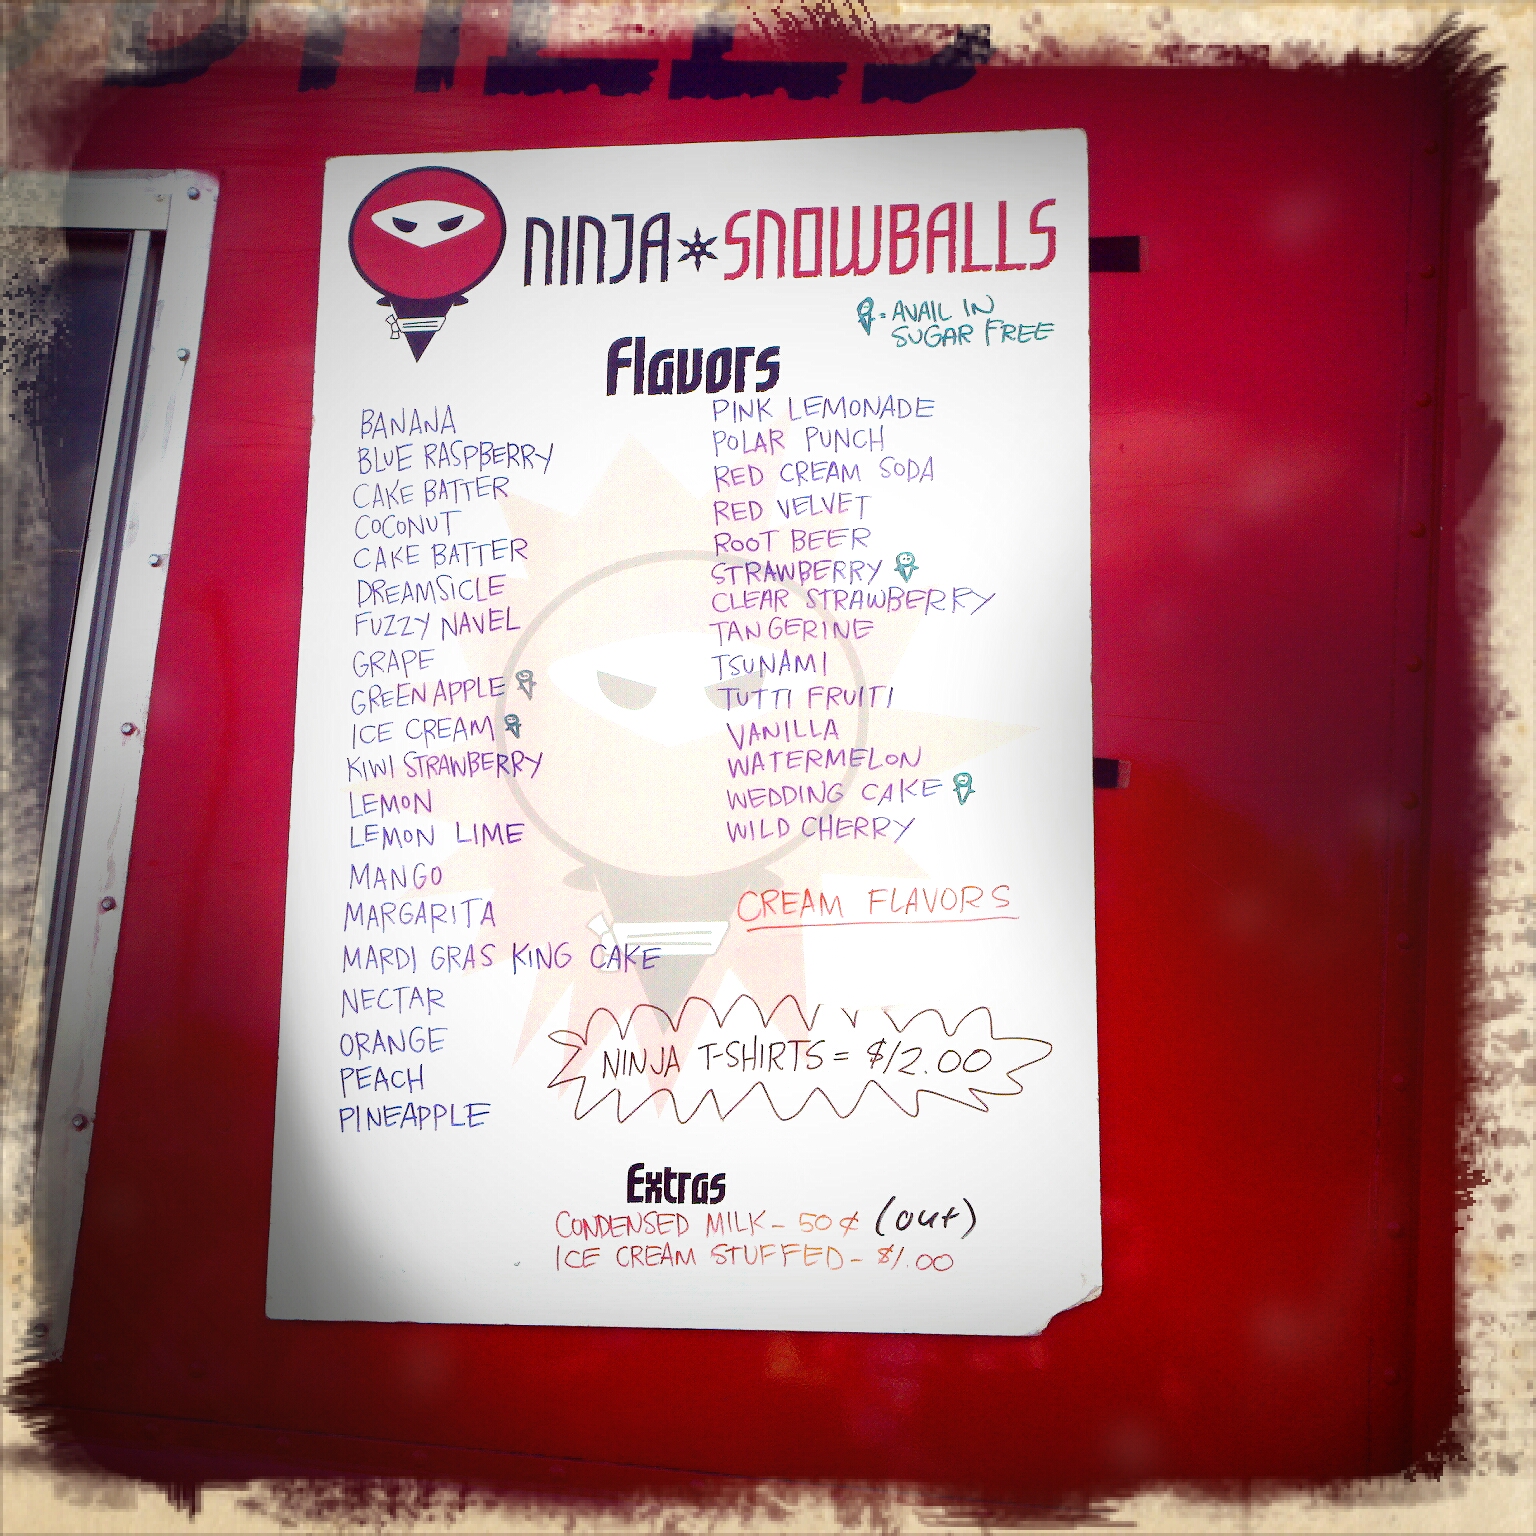 NINJA SNOWBALLS
= AVAIL IN
SUGAR FREE
Flavors
BANANA
BLUE RASPBERRY
CAKE BATTER
COCONUT
CAKE BATTER
DREAMSICLE
FUZZY NAVEL
GRAPE
GREEN APPLE
ICE CREAM
KIWI STRAWBERRY
LEMON
LEMON LIME
MANGO
MARGARITA
MARDI GRAS KING CAKE
NECTAR
ORANGE
PEACH
PINEAPPLE
PINK LEMONADE
POLAR PUNCH
RED CREAM SODA
RED VELVET
ROOT BEER
STRAWBERRY
CLEAR STRAWBERRY
TANGERINE
TSUNAMI
TUTTI FRUITI
VANILLA
WATERMELON
WEDDING CAKE
WILD CHERRY
CREAM FLAVORS
NINJA T-SHIRTS = $12.00
Extras
CONDENSED MILK - 50¢ (out)
ICE CREAM STUFFED - $1.00